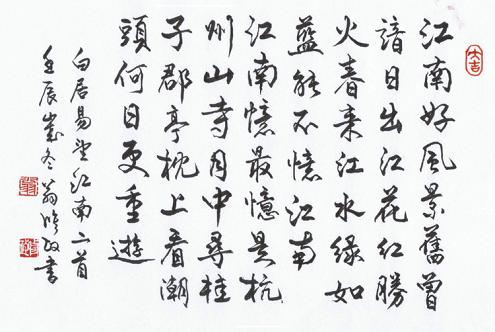 大吉
江南好風景舊曾
諳日出江花红勝
火春来江水緑如
藍能不憶江南
江南憶最憶是杭
州山寺月中尋桂
子郡亭枕上看潮
頭何日更重遊
白居易望江南二首
壬辰歲冬翁書